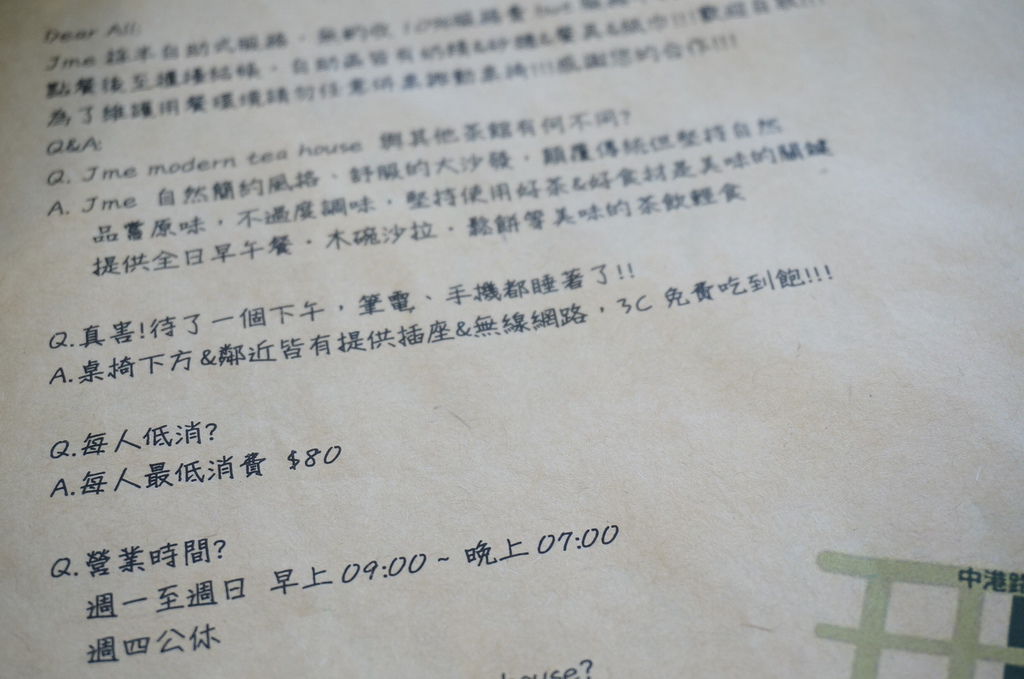 Dear All:
Jme 採半自助式服務，無酌收 10%服務費 but
點餐後至櫃檯結帳，自助區皆有奶精&砂糖&餐具&紙巾!!!歡迎自取!!!
為了維護用餐環境請勿任意併桌挪動桌椅!!!感謝您的合作!!!
Q&A:
Q. Jme modern tea house 與其他茶館有何不同?
A. Jme 自然簡約風格、舒服的大沙發，顛覆傳統但堅持自然
品嘗原味，不過度調味，堅持使用好茶&好食材是美味的關鍵
提供全日早午餐，木碗沙拉，鬆餅等美味的茶飲輕食
Q.真害!待了一個下午，筆電、手機都睡著了!!
A.桌椅下方&鄰近皆有提供插座&無線網路，3C 免費吃到飽!!!
Q.每人低消?
A.每人最低消費 $80
Q.營業時間?
週一至週日 早上09:00~ 晚上07:00
週四公休
house?
中港路